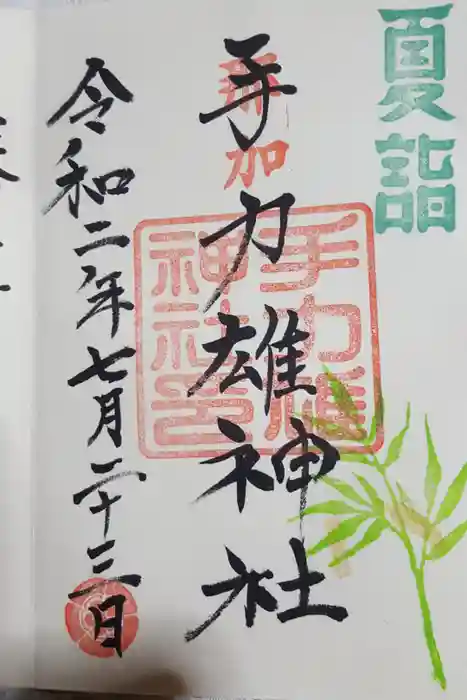 夏詣
那加
手力雄神社
手力雄
神社印
令和二年七月二十三日